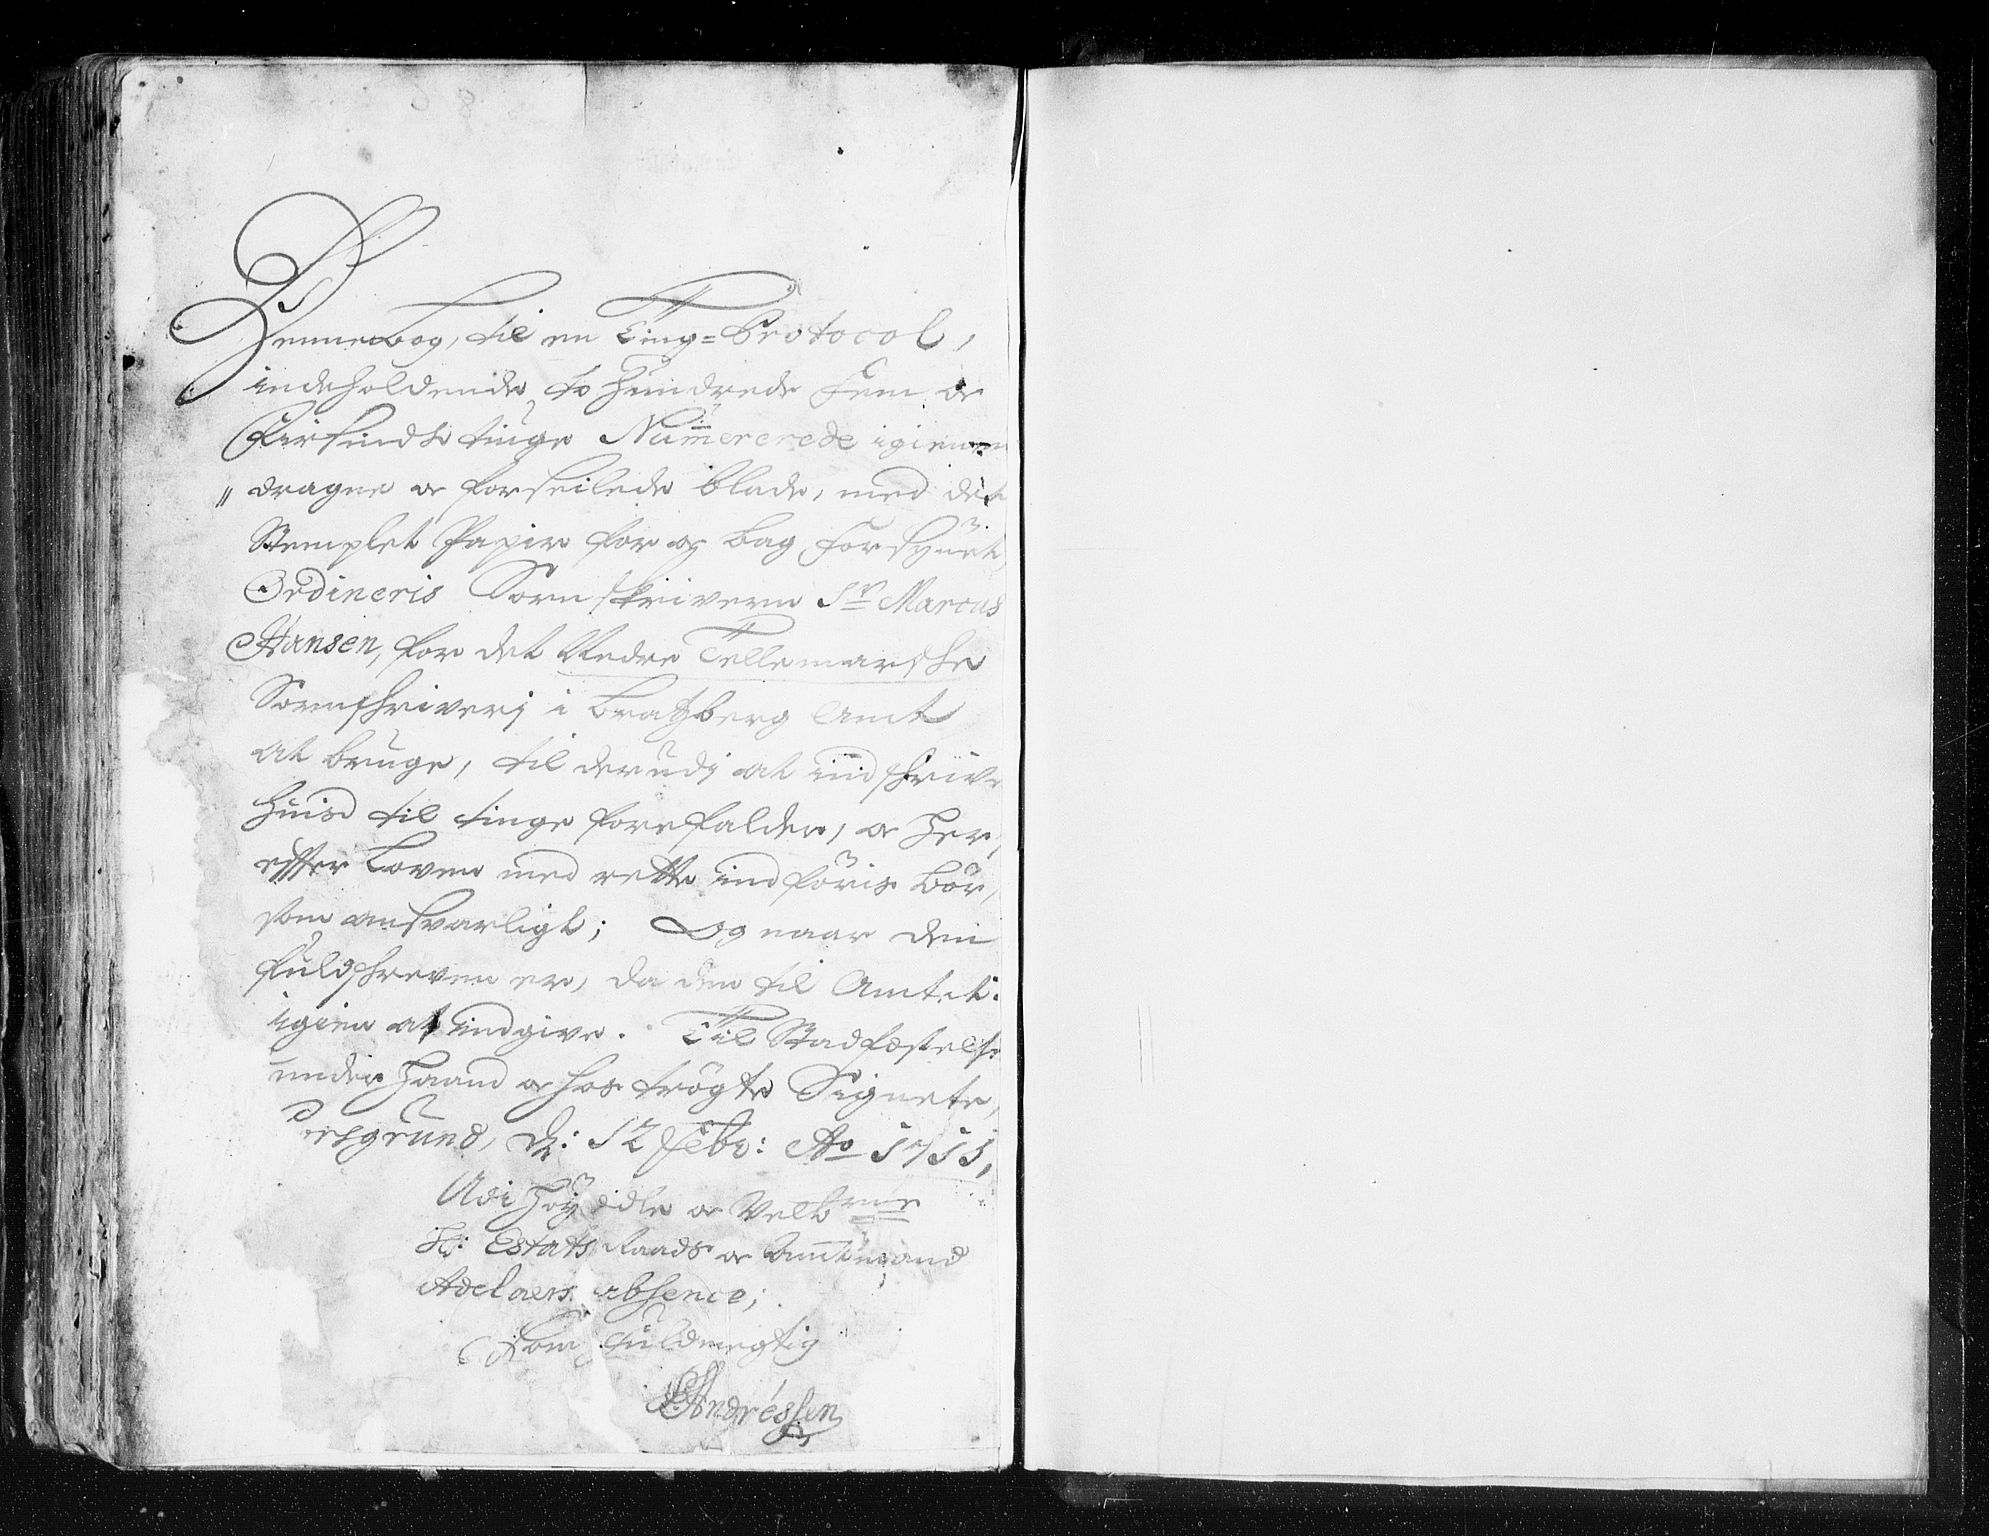 Dennebog, til en Ting=Protocol,
indeholdende to Hundrede Fem og
Firsindstiuge Numererede igienem
„ dragne og forseilede blade, med det
Stemplet Papir for og bag forsynet,
Ordineris Sorenskriveren Sr Marcus
Hansen, for det Nedre Tellemarchse
Sorenskriverj i Bratzberg Amt
at bruge, til derudj at indskrive
huis til tinge forefalder, og Her,
effter Loven med rette indføris bør,
som ansvarligt; Og naar den
fuldskreven er, da den til Amtet
igien at indgive. Til Stadfæstelse
under Haand og hos trøgte Signete,
Porsgrund, d: 12 Febr: Ao 1711,
Udi Høyædle og Velbrne
Hr: Estats Raads og Amtmand
Adelaers absence;
som fuldmegtig
Andréssen